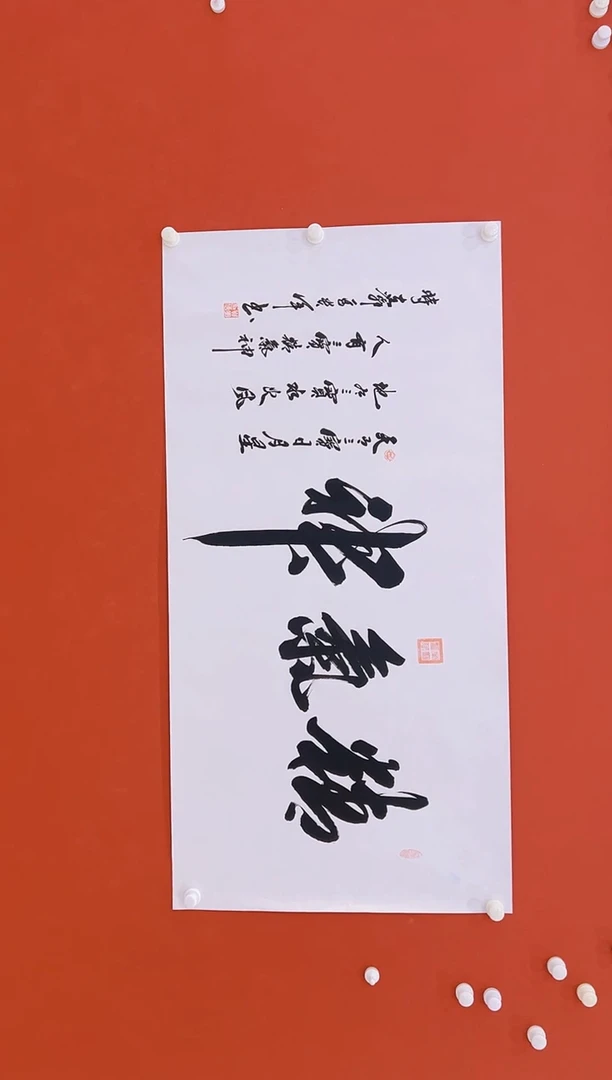 精氣神
天有三寶日月星
地有三寶水火風
人有三寶精氣神